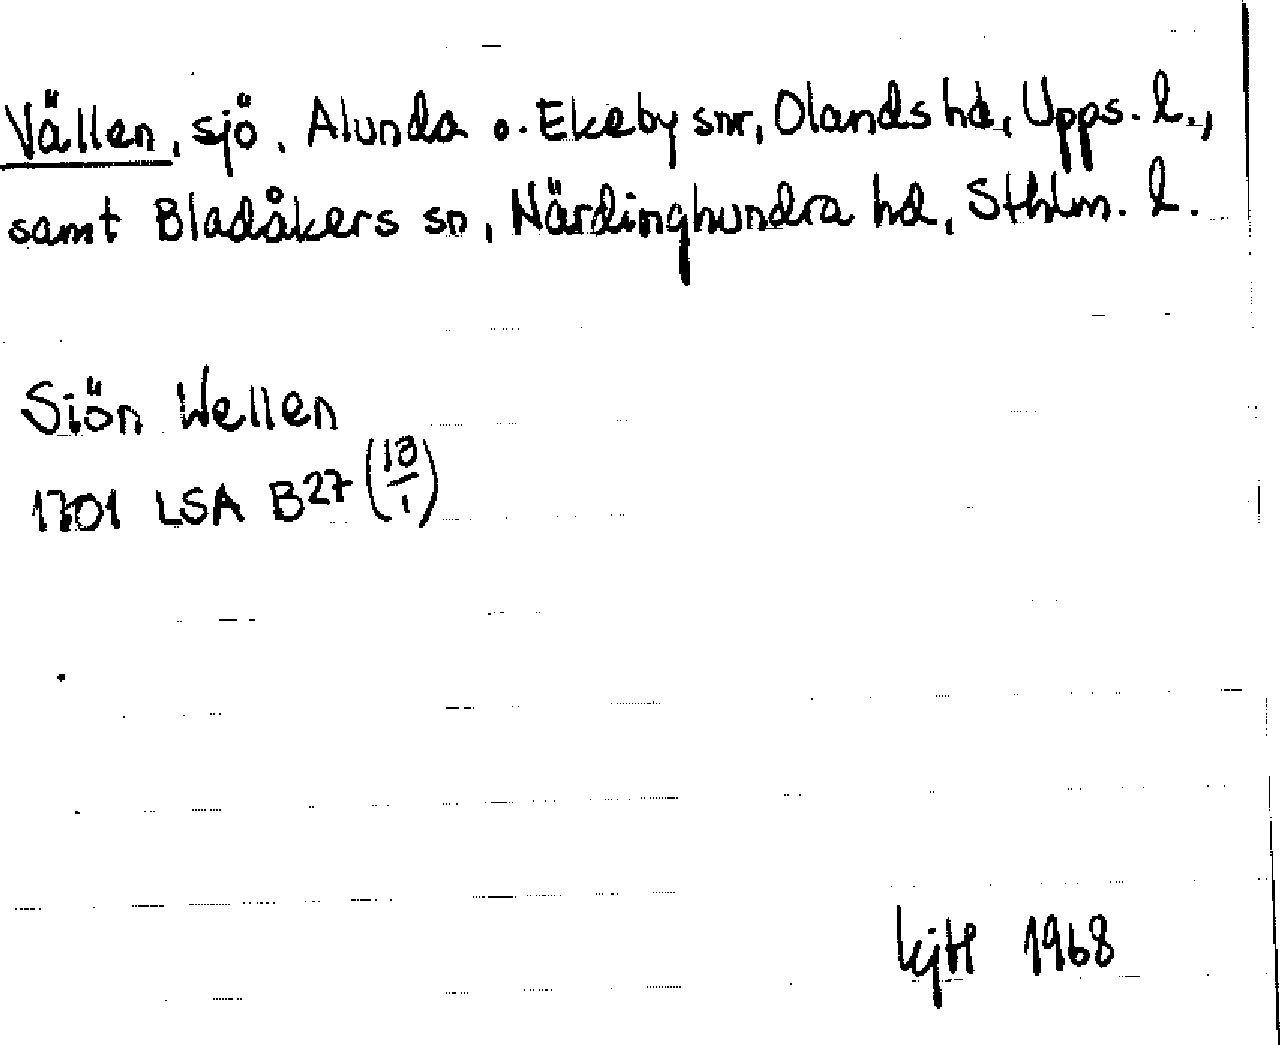 Vällen, sjö, Alunda o. Ekeby snr, Olands hd, Upps. l.,
samt Bladåkers sn, Närdinghundra hd, Sthlm. l.
Siön Wellen
1701 LSA B27 (13/1)
KjH 1968